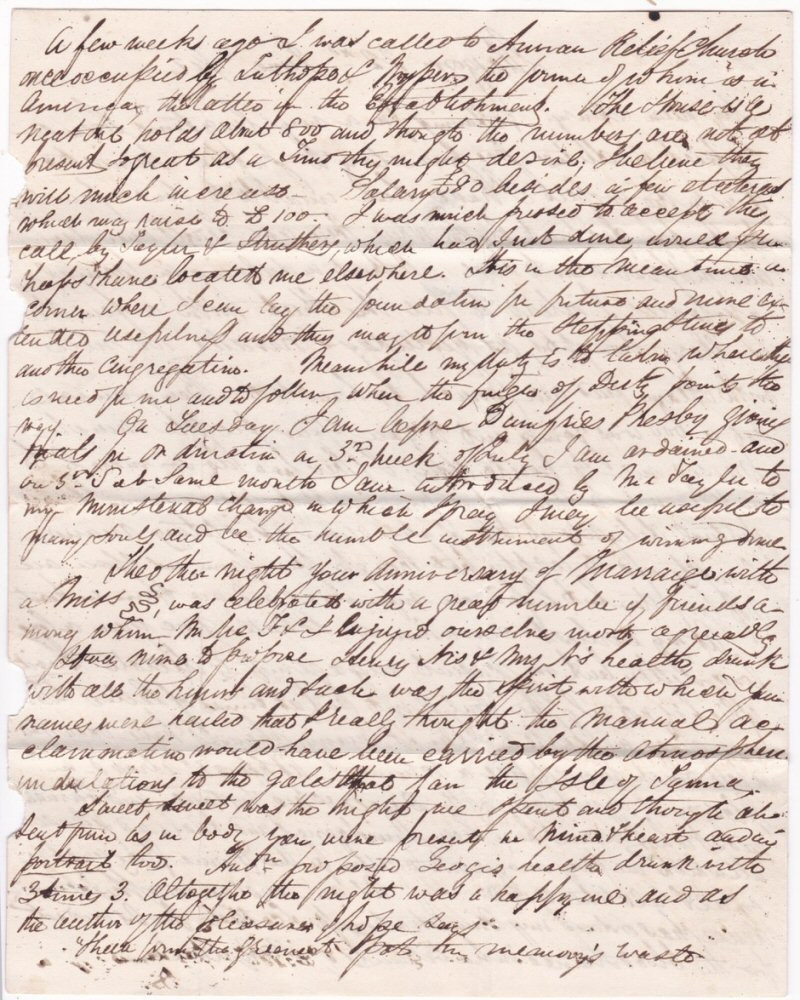 A few weeks ago I was called to Annan Relief Church
once occupied by & the former of whom is in
America the latter in the Establishment. The House is a
neat one holds about 800 and though the numbers are not at
present so great as a Timothy might desire, I believe they
will much increase - Salary £80 besides a few etceteras
which may raise to £100. I was much pressed to accept this
call by Taylor & Struthers, which had I not done, would per
haps have located me elsewhere. This in the meantime is a
corner where I can lay the foundation for future and more ex
tended usefulness and this may to form the Stepping Stones to
another Congregation. Meanwhile my duty is to labour where there
is need for me and to follow when the finger of Duty points the
way. On Tuesday I am before Dumfries Presby giving
trials for ordination on 3rd week of July I am ordained and
on 3rd Sab same month I am introduced by Mr Taylor to
my Ministerial Charge in which I pray I may be useful to
many souls and be the humble instrument of winning some
The other night your Anniversary of Marraige with
a Miss was celebrated with a great number of friends a
mong whom enjoyed ourselves most agreeably
mine to propose Henry & Mrs N's health, drunk
with all the and such was the spirit with which your
names were hailed that I really thought the manual ac
clammation would have been carried by the atmospheric
undulations to the gales that fan the Isle of
Sweet sweet was the night we spent and though ab
sent from us in body you were present in mind & heart and in
portrait too. proposed Georges health drunk with
3 times 3. Altogether the night was a happy one and as
the author of the pleasures of hope says
"There form the greenest spots in memory's waste